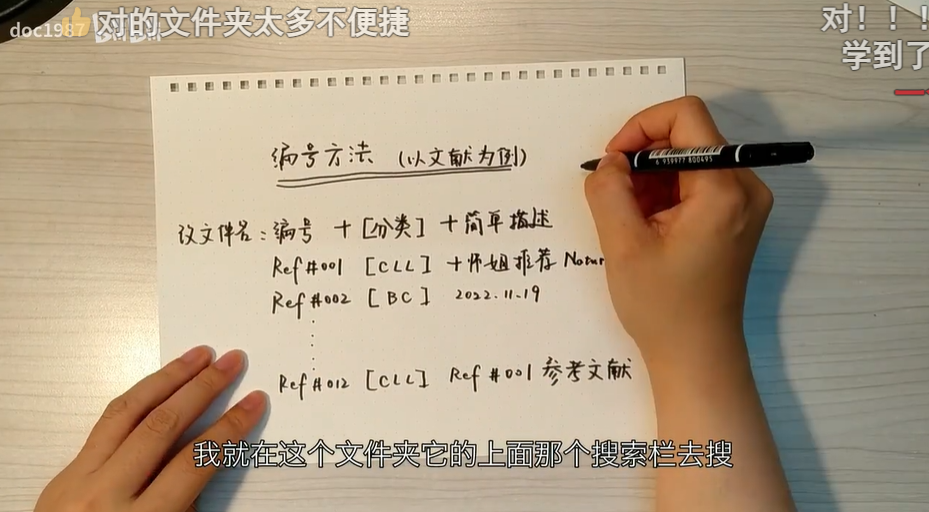 doc1987
对的文件夹太多不便捷
对！！！
学到了
编号方法 (以文献为例)
改文件名：编号 + [分类] + 简单描述
Ref#001 [CLL] + 师姐推荐 Natur
Ref#002 [BC] 2022.11.19
Ref#012 [CLL] Ref #001 参考文献
6 939977 800495
我就在这个文件夹它的上面那个搜索栏去搜